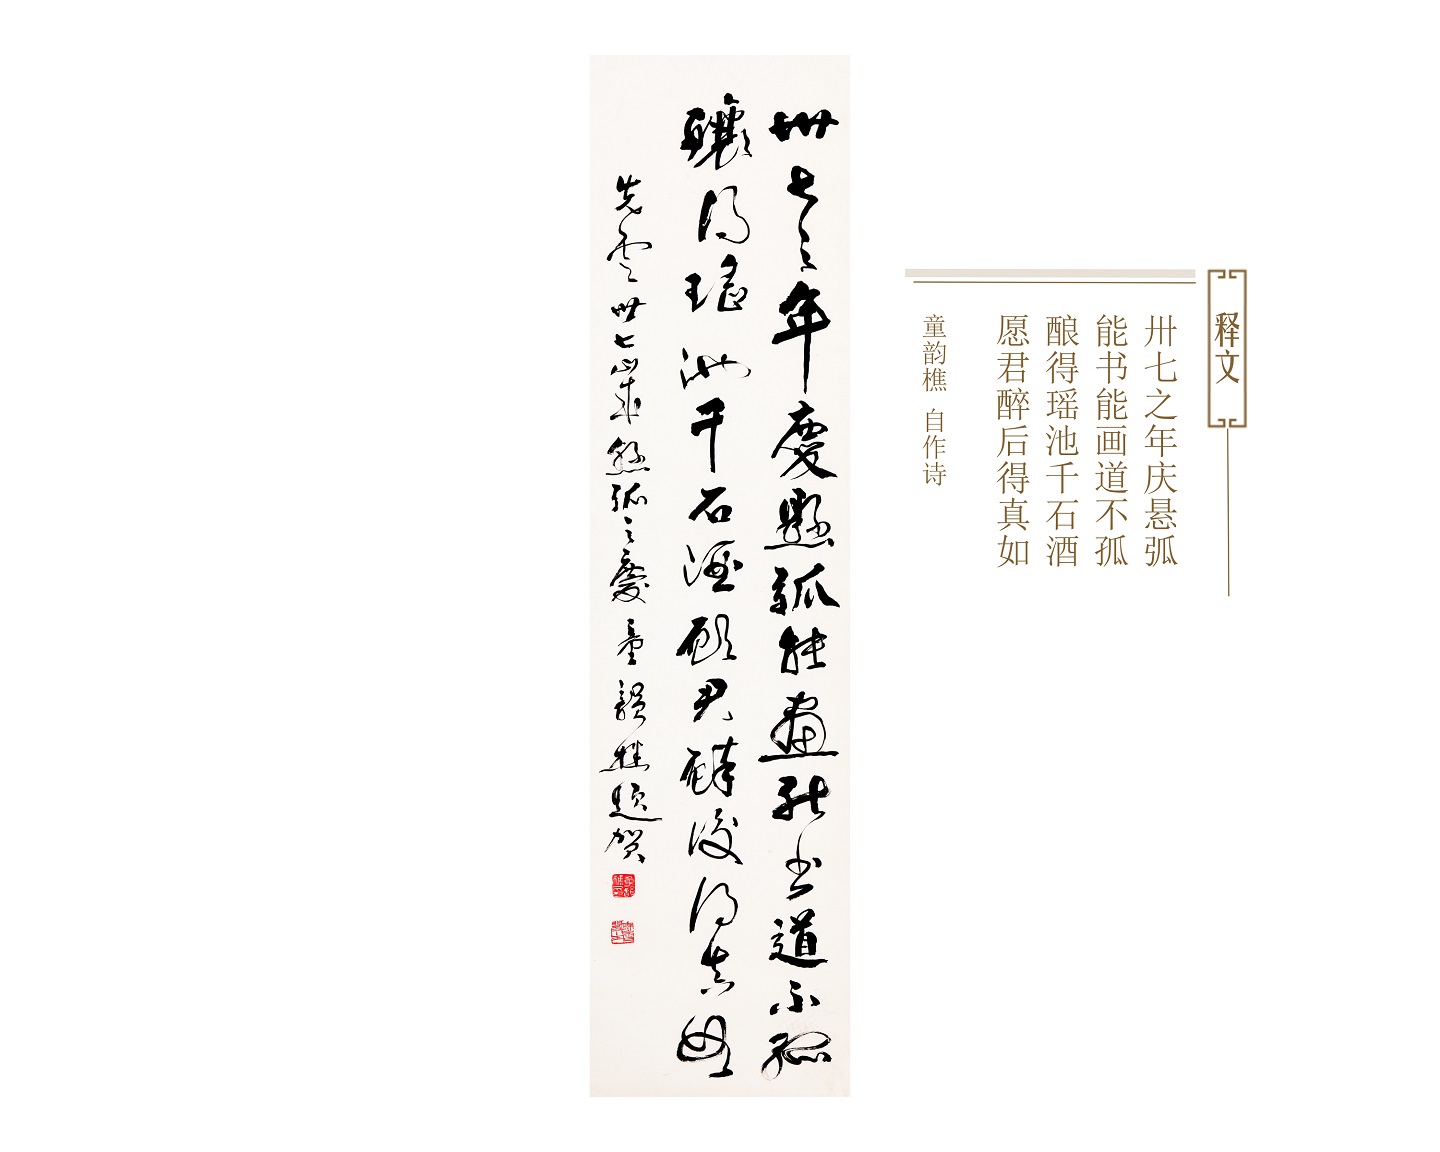 释文
卅七之年庆悬弧
能书能画道不孤
酿得瑶池千石酒
愿君醉后得真如
童韵樵 自作诗
卅七之年慶懸弧能畫能书道不孤
釀得瑤池千石酒願君醉後得真如
先雲卅七歲懸弧之慶童韻樵題賀